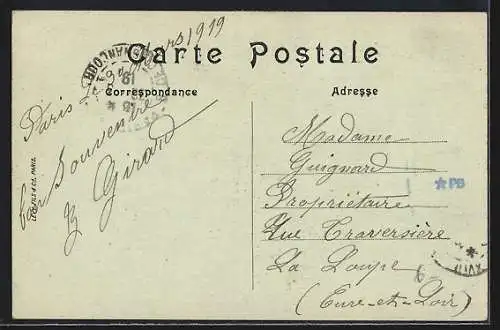 Carte Postale
Correspondance
Adresse
Paris Mars 1919
Bon Souvenire
Girard
Madame
Guignard
Propriétaire
Rue Traversière
La Loupe
(Eure-et-Loir)
PB